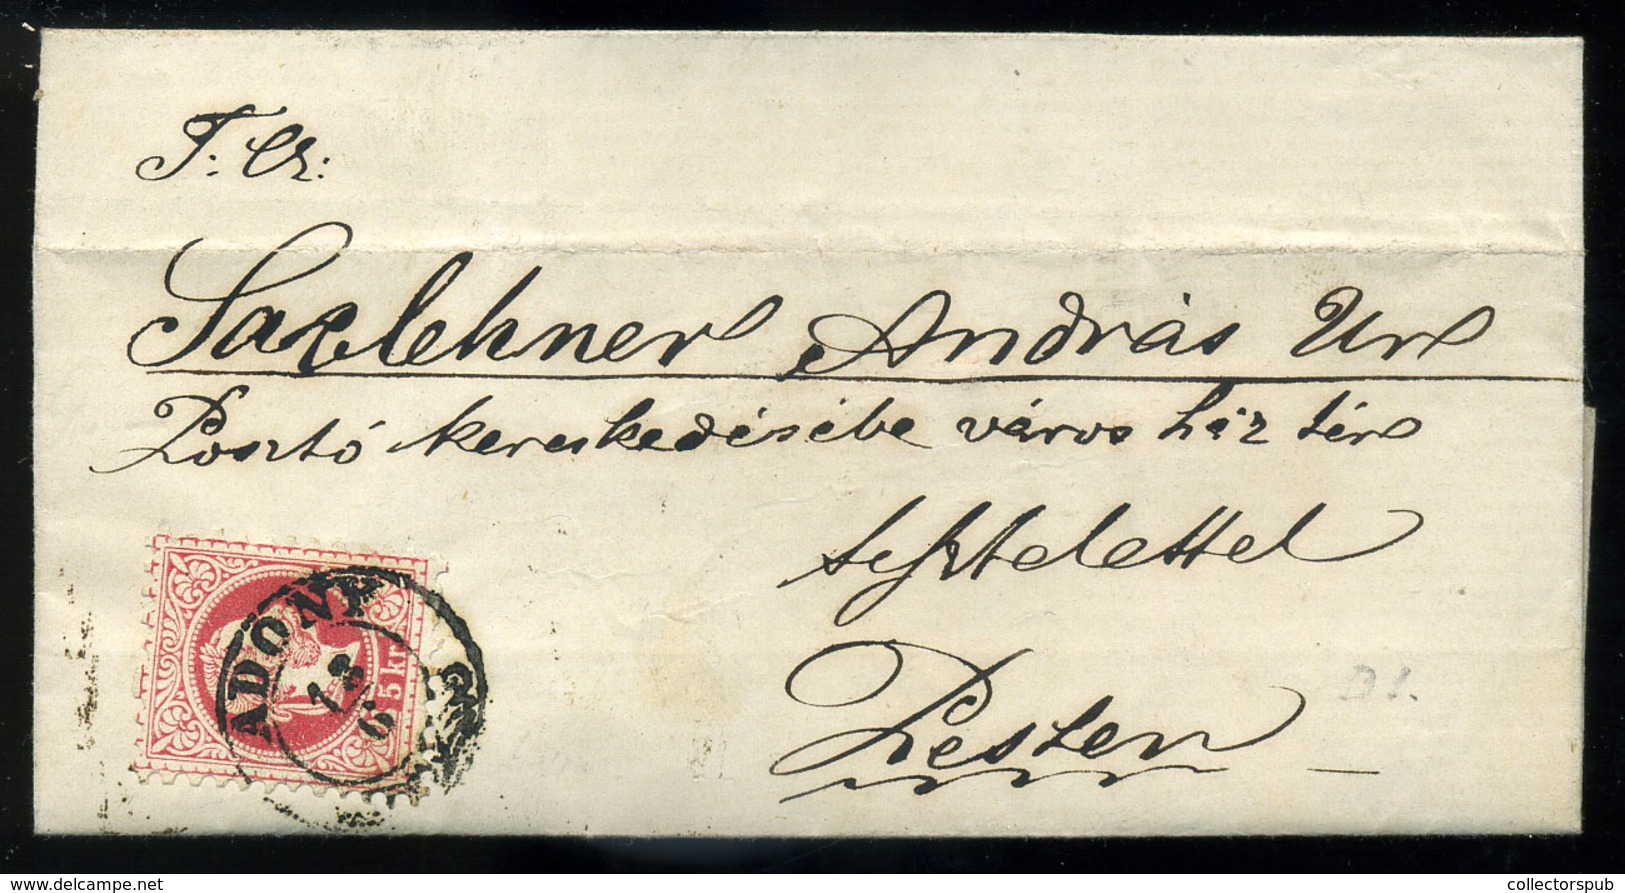 T. Cz:
Saxlehner András Úr
Posztó kereskedésébe város ház tér
tisztelettel
Pesten
ADONY
12
6
5 kr
D 1.
delcampe.net
collectorspub